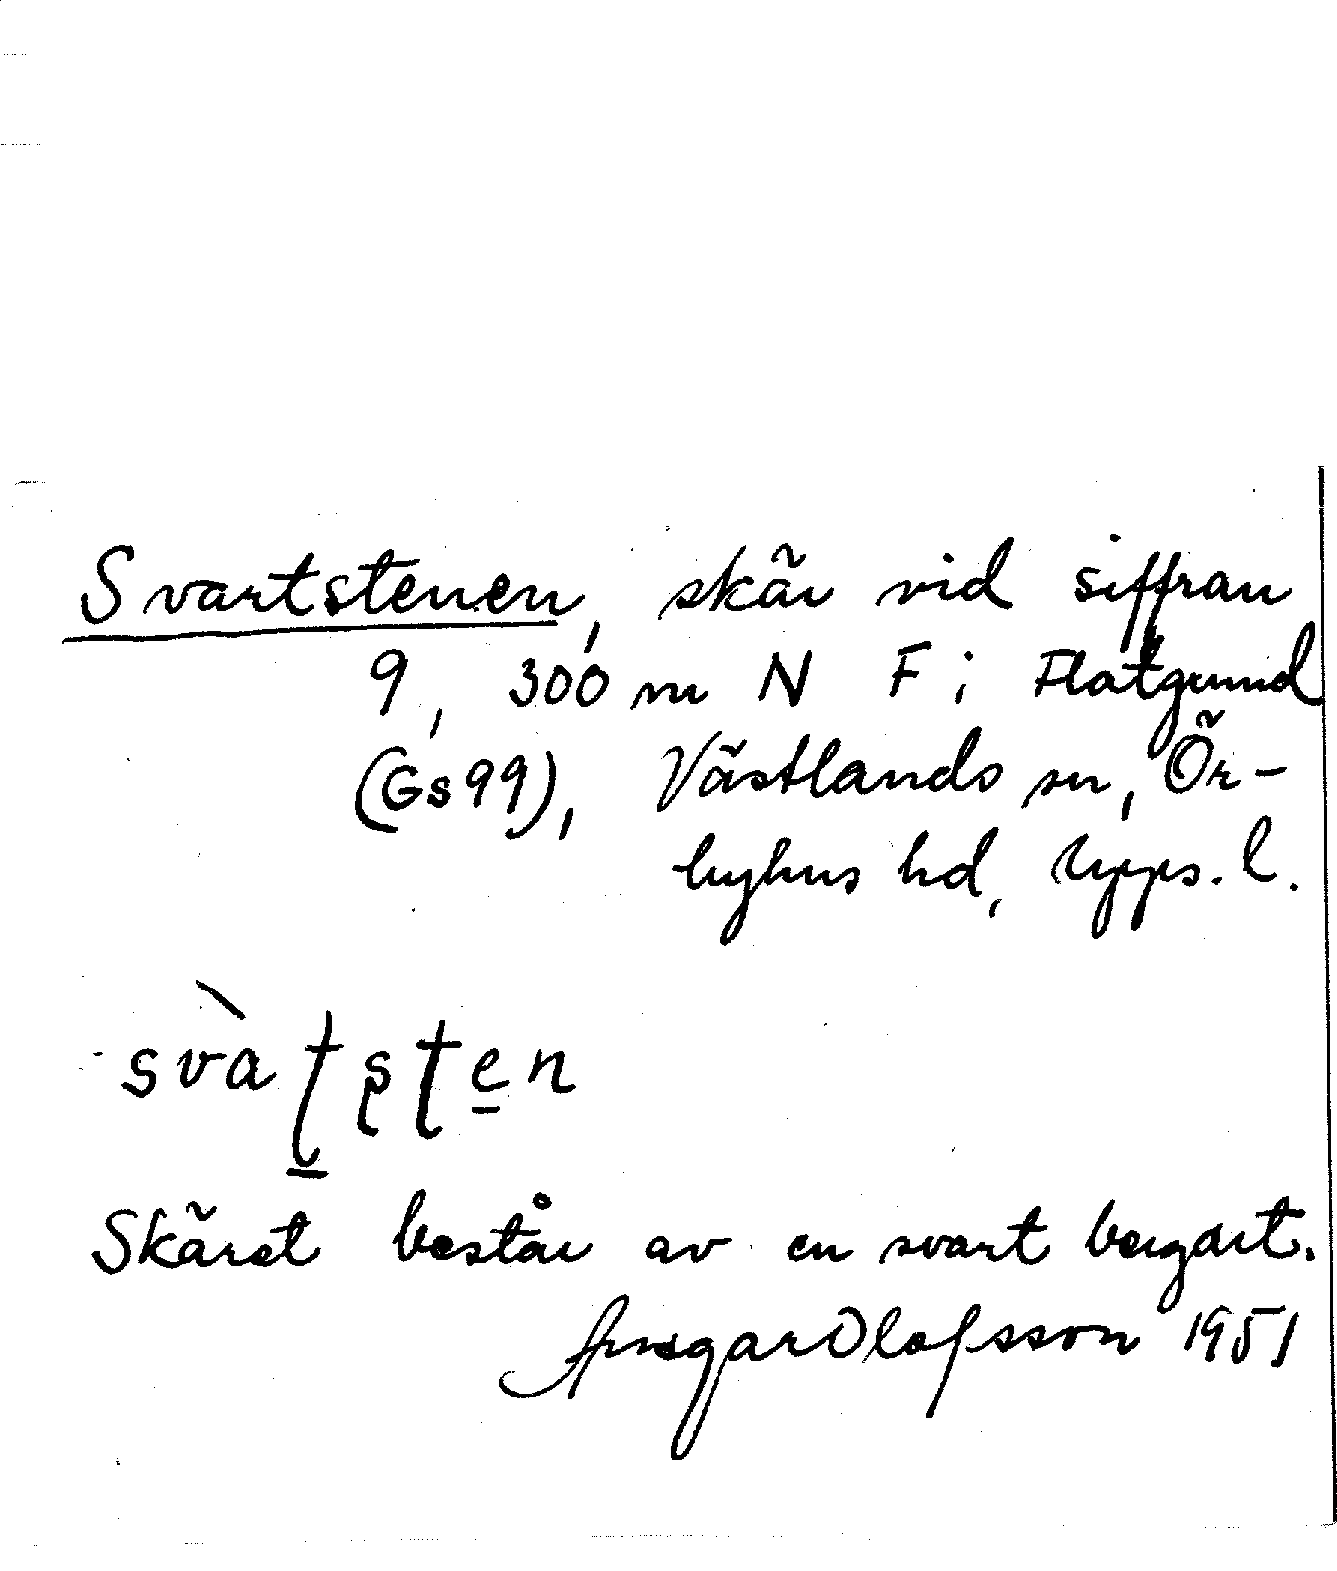 Svartstenen, skär vid siffran
9, 300 m N F i Flatgrund
(Gs 99), Västlands sn, Ör-
byhus hd, Upps. l.
svàtsten
Skäret består av en svart bergart.
Ansgar Olofsson 1951